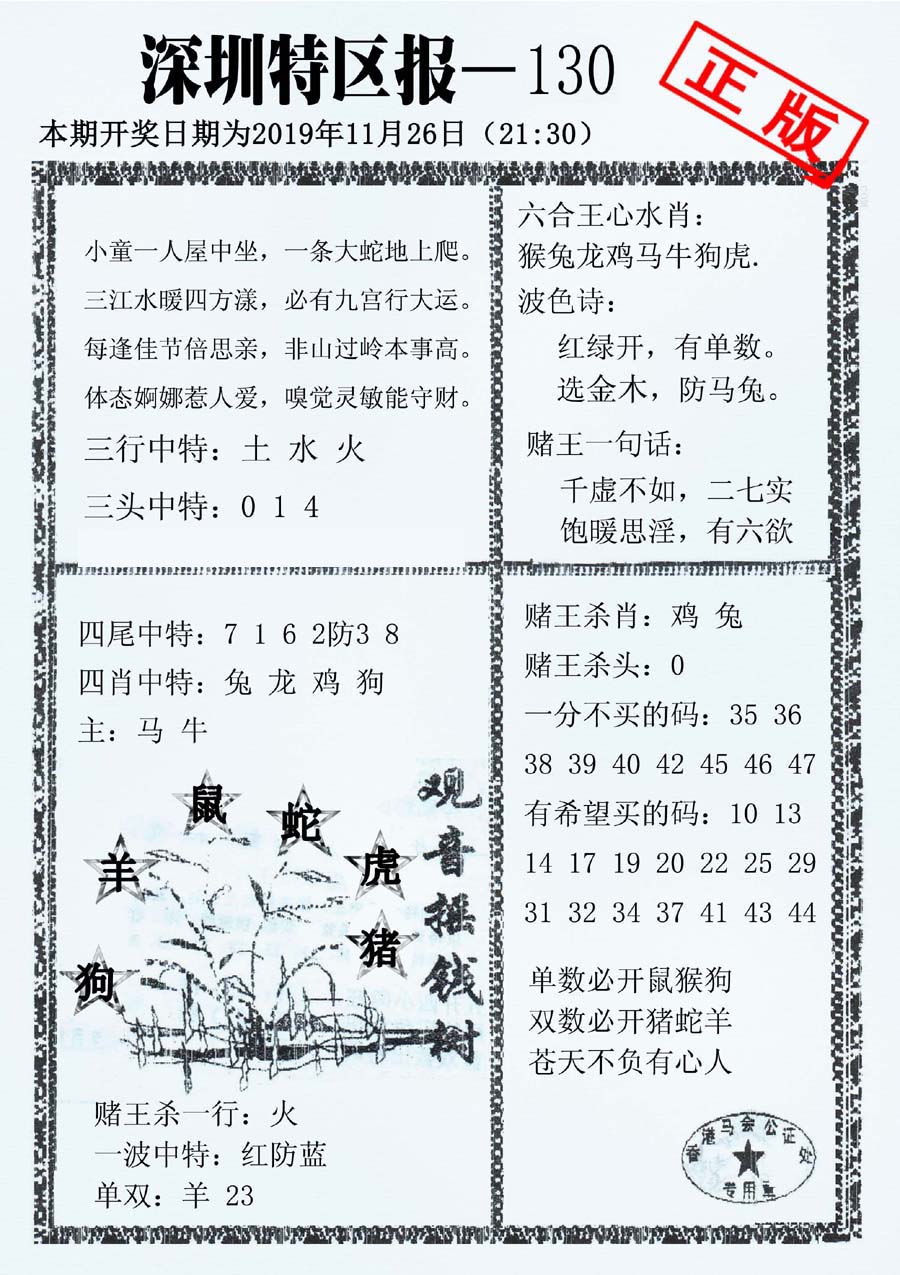 深圳特区报—130
正版
本期开奖日期为2019年11月26日（21:30）
小童一人屋中坐，一条大蛇地上爬。
三江水暖四方漾，必有九宫行大运。
每逢佳节倍思亲，非山过岭本事高。
体态婀娜惹人爱，嗅觉灵敏能守财。
三行中特：土 水 火
三头中特：0 1 4
六合王心水肖：
猴兔龙鸡马牛狗虎.
波色诗：
红绿开，有单数。
选金木，防马兔。
赌王一句话：
千虚不如，二七实
饱暖思淫，有六欲
四尾中特：7 1 6 2防3 8
四肖中特：兔 龙 鸡 狗
主：马 牛
鼠
蛇
羊
虎
猪
狗
观音摇钱树
赌王杀一行：火
一波中特：红防蓝
单双：羊 23
赌王杀肖：鸡 兔
赌王杀头：0
一分不买的码：35 36
38 39 40 42 45 46 47
有希望买的码：10 13
14 17 19 20 22 25 29
31 32 34 37 41 43 44
单数必开鼠猴狗
双数必开猪蛇羊
苍天不负有心人
香港马会公证处
专用章